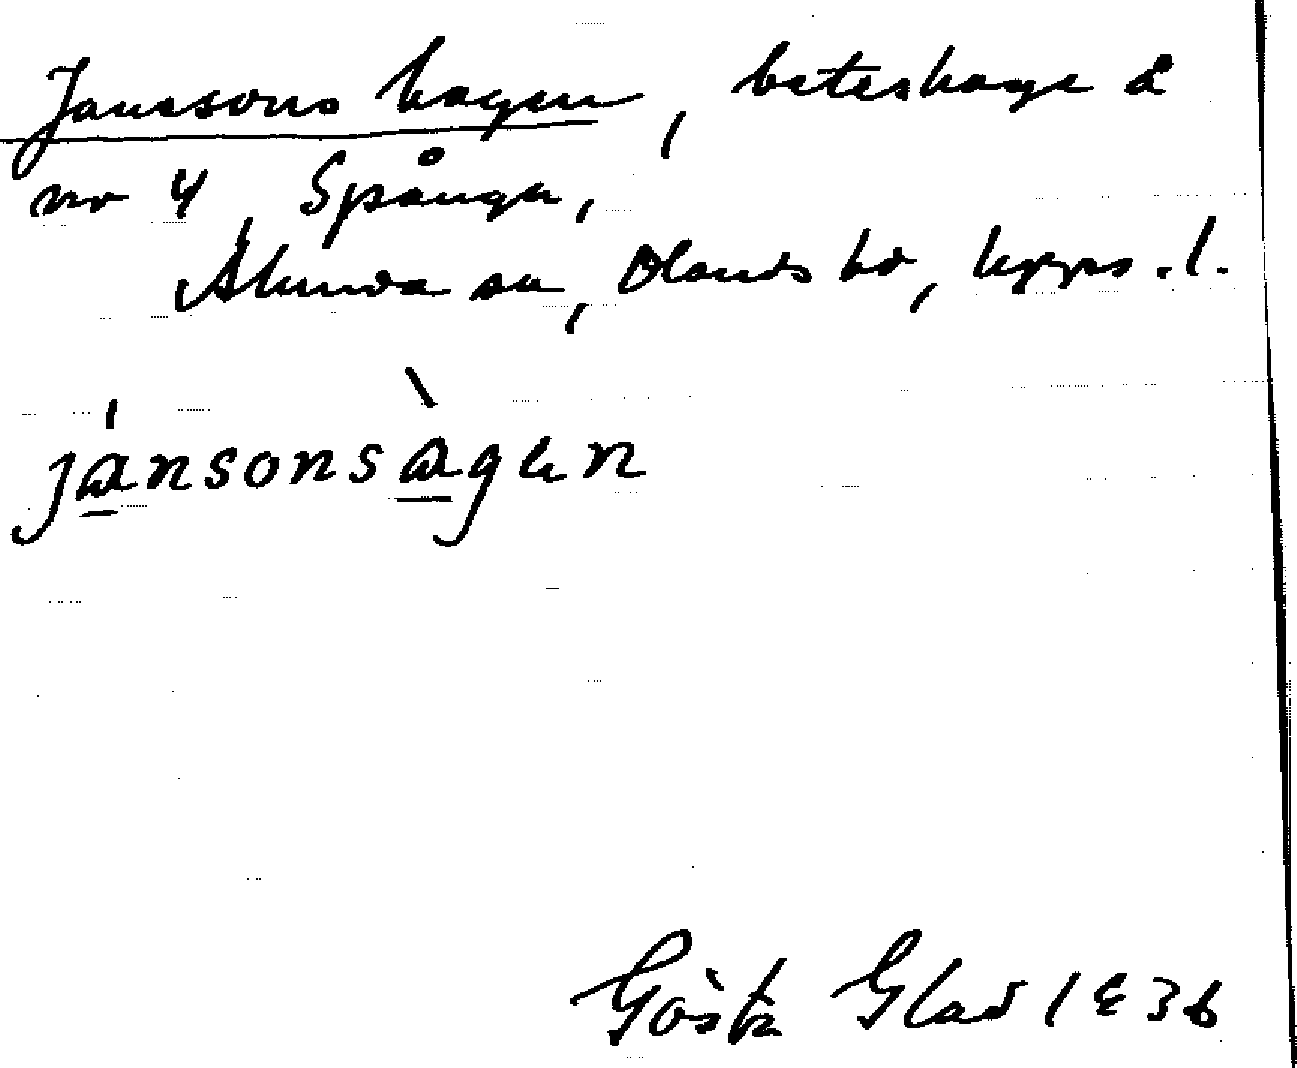 Janssons hagen, beteshage å
nr 4 Spånga,
Alunda sn, Olands hd, Upps. l.
jánsonsàgen
Gösta Glad 1936